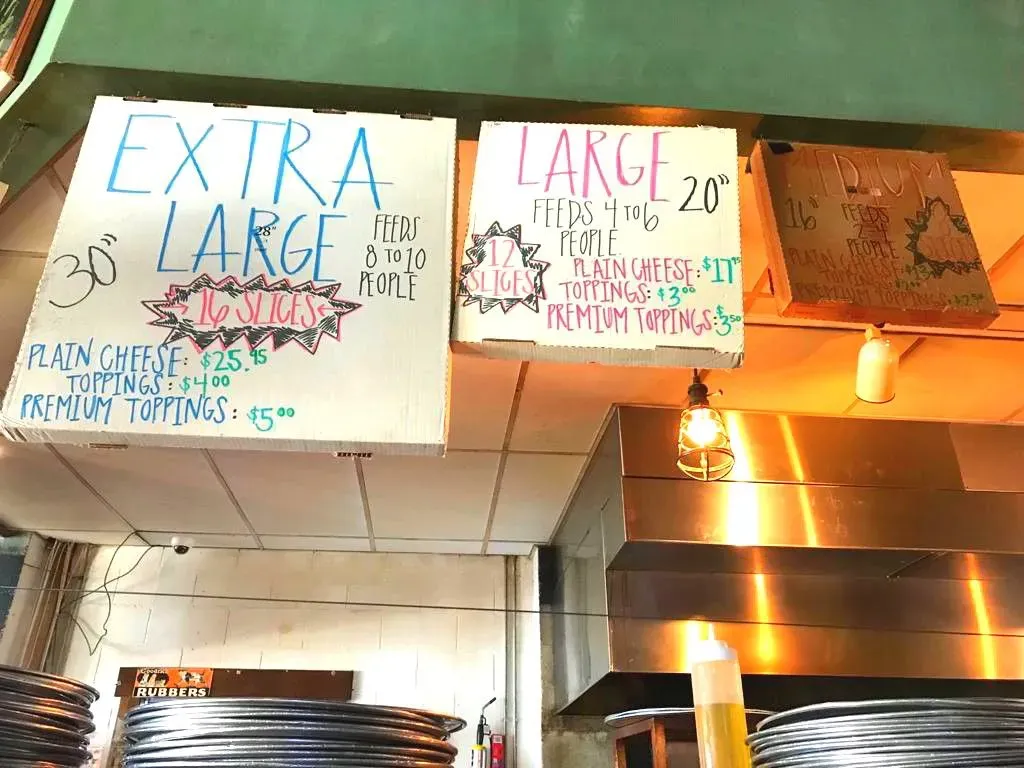 EXTRA
LARGE
28"
30"
FEEDS
8 TO 10
PEOPLE
16 SLICES
PLAIN CHEESE: $25.95
TOPPINGS: $4.00
PREMIUM TOPPINGS: $5.00
LARGE
20"
FEEDS 4 TO 6
PEOPLE.
12
SLICES
PLAIN CHEESE: $17.95
TOPPINGS: $3.00
PREMIUM TOPPINGS: $3.50
MEDIUM
16"
FEEDS
PEOPLE
SLICES
PLAIN CHEESE:
TOPPINGS:
PREMIUM TOPPINGS:
Goodrich
RUBBERS